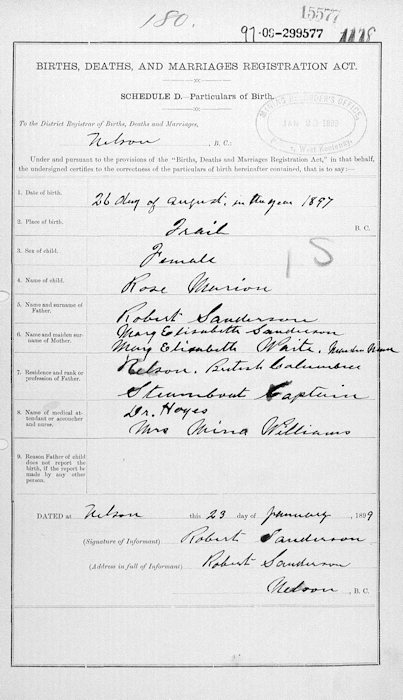 180.
15577
97-09-299577
BIRTHS, DEATHS, AND MARRIAGES REGISTRATION ACT.
SCHEDULE D.—Particulars of Birth.
To the District Registrar of Births, Deaths and Marriages,
Nelson , B. C.:
JAN 23 1899
West Kootenay
Under and pursuant to the provisions of the "Births, Deaths and Marriages Registration Act," in that behalf,
the undersigned certifies to the correctness of the particulars of birth hereinafter contained, that is to say:—
1. Date of birth. 26 day of August, in the year 1897
2. Place of birth. Trail B. C.
3. Sex of child. Female
4. Name of child. Rose Marion
5. Name and surname of Father. Robert Sanderson
6. Name and maiden surname of Mother. Mary Elizabeth Sanderson
Mary Elizabeth Waite. Maiden Name
7. Residence and rank or profession of Father. Nelson, British Columbia
Steamboat Captain
8. Name of medical attendant or accoucher and nurse. Dr. Hoyes
Mrs Mina Williams
9. Reason Father of child does not report the birth, if the report be made by any other person.
DATED at Nelson this 23 day of January , 1899
(Signature of Informant) Robert Sanderson
(Address in full of Informant) Robert Sanderson
Nelson , B. C.